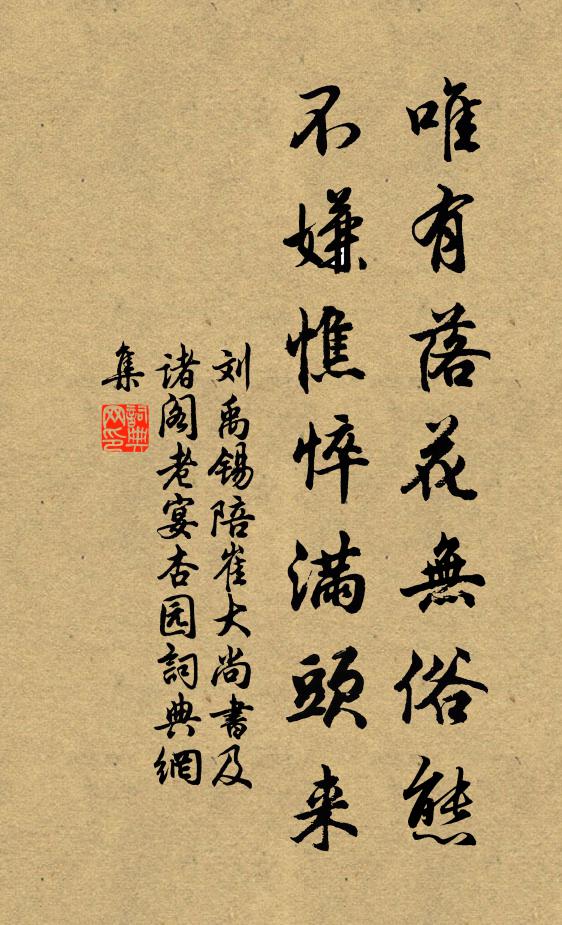 唯有落花無俗態
不嫌憔悴满頭来
刘禹锡陪崔大尚書及
诸阁老宴杏园詞典網
集
詞典
网印